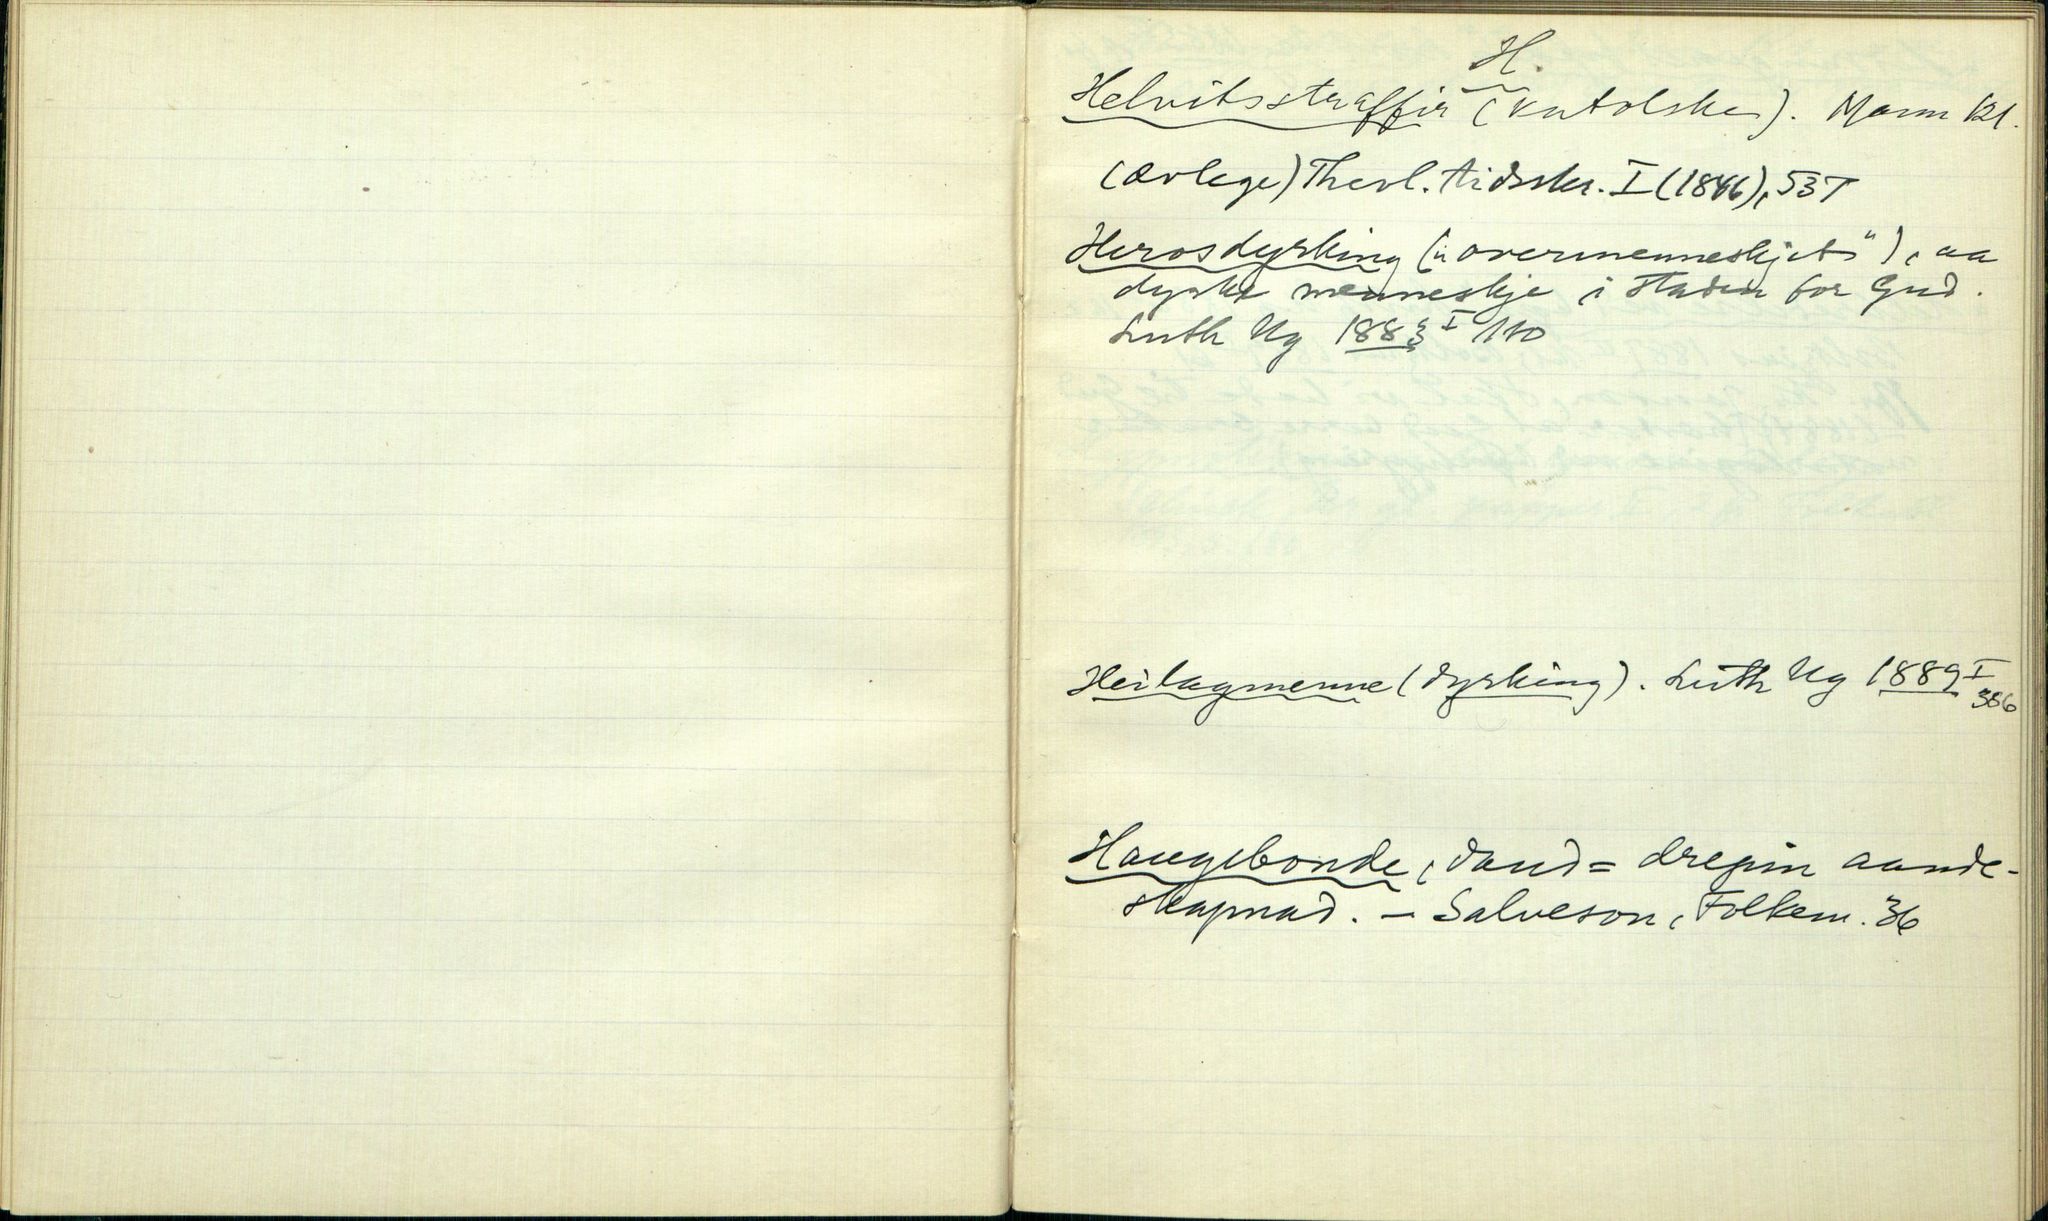 H.
Helvitsstraffir (katolske). Mann 121.
(ævlege) Theol. tidsskr. I (1846), 537
Herosdyrking („overmenneskjet“), aa
dyrke menneskje i staden for Gud.
Luth Ug 1883 I 110
Heilagmenne (dyrking). Luth Ug 1889 I
386
Haugebonde, daud= drepin aande-
skapnad. – Salveson, Folkem. 36